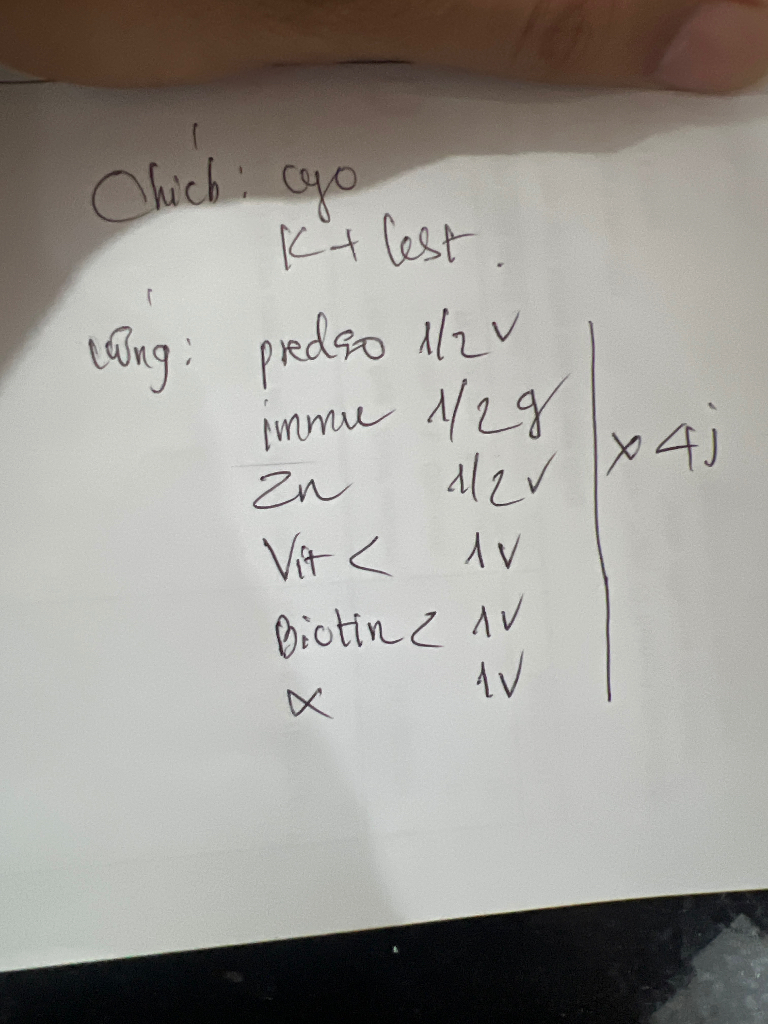 Chích: cyo
K + test.
uống: predzo 1/2 v
immu 1/2 g
Zn 1/2 v
Vit C 1 v
Biotin C 1 v
α 1 v
x 4j